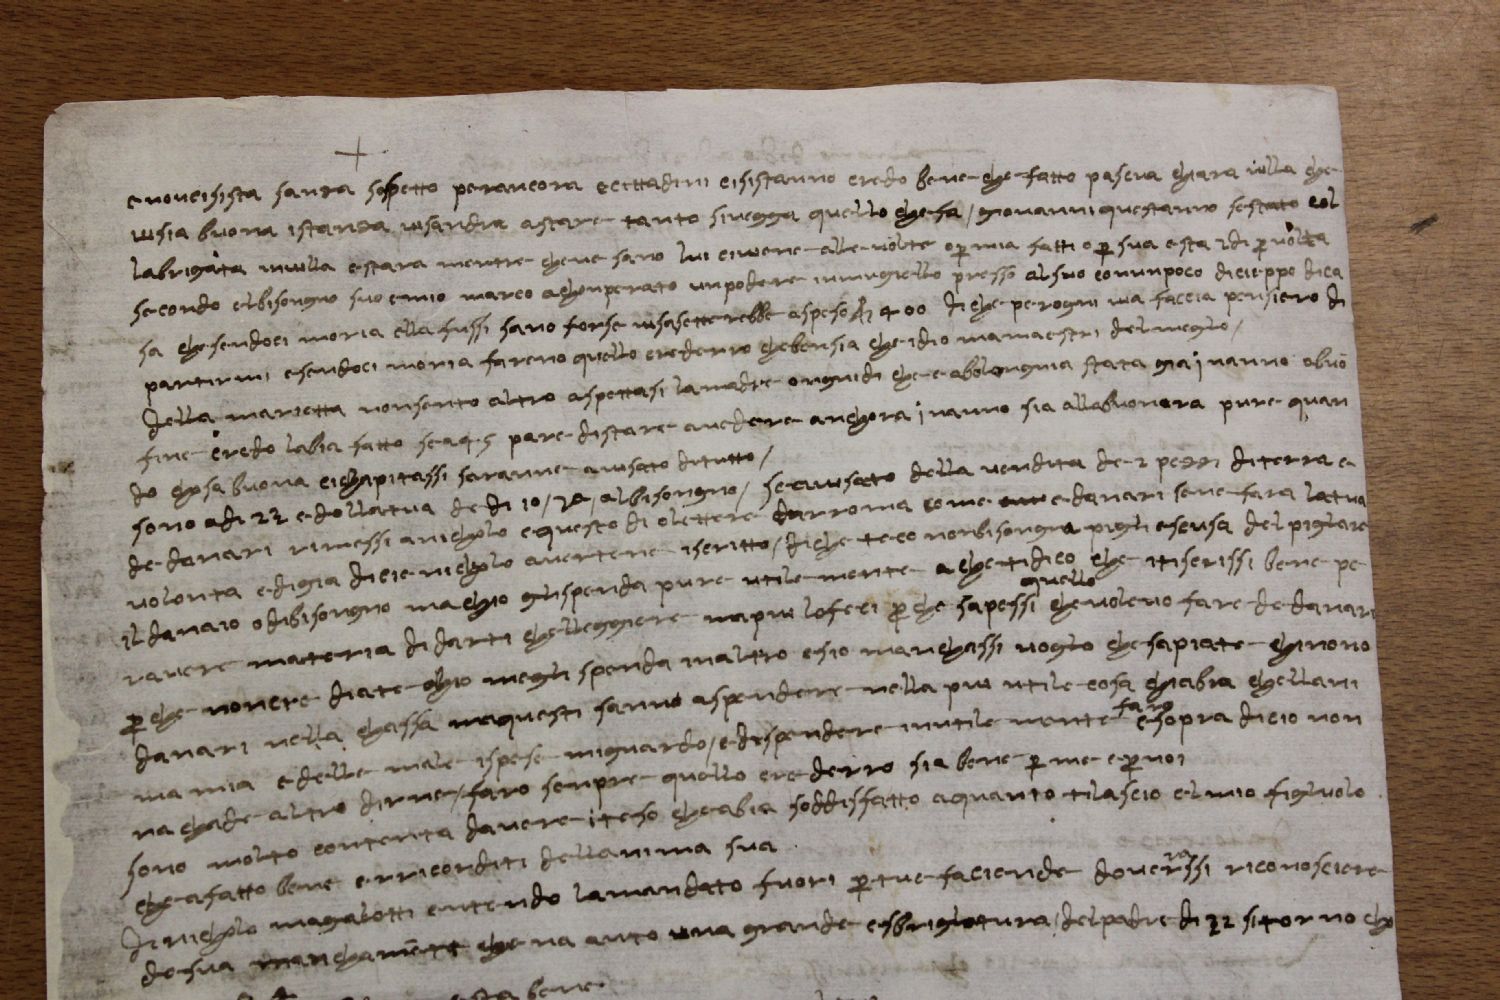 e non ci si sta sanza sospetto per ancora e cittadini ci si stanno credo bene che fatto pasqua chiara villa che
vi sia buona istanza vi s andra a stare tanto si vegga quello che fa / giovanni questanno se stato col
la brigata in villa e stara mentre che ve sano lui ci viene alle volte o p mia fatti o p sua e sta 2 di p volta
secondo el bisongno suo e mio marco a chonperato un podere in mugiello presso al suo con un poco di cieppo di ca
sa che sendoci moria ella fussi sano forse vi s asetterebbe a speso f 400 di che per ogni via faccia pensiero di
partirvi e sendoci moria fareno quello crederro che ben sia che idio ma maestri del meglio /
della marietta non sento altro aspettasi la madre ongni di che e a bolongnia stata gia j nanno o buo
fine credo l abia fatto se a q 5 pare di stare a vedere anchora j nanno sia alla buonora pure quan
do chosa buona ci chapitassi saranne avisato di tutto /
sono a di 22 e do lla tua de di 10 / 20 / al bisongno / se avisato della vendita de 2 pezzi di terra e
de danari rimessi a nicholo e questo di o lettere da rroma come e danari se ne fara la tua
volonta e di gia dicie nicholo avertene iscritto / di che teco non bisongna pigli e scusa del pigliare
il danaio o di bisongno ma chio gli spenda pure utile mente a che ti dico che i ti scrissi bene pe
r avere materia di darti che lleggiere ma piu lo feci p che sapessi quello che volevo fare de danari
p che non crediate chio megli spenda in altro e sio manchassi voglo che sapiate che ino no
danari nella chassa ma questi sanno a spendere nella piu utile cosa ch abia che ll ani
ma mia e delle male ispese mi guardo / e di spendere inutile mente faro e sopra di cio non
na chade altro dirne / faro senpre quello crederro sia bene p me e p voi
sono molto contenta davere inteso che abia soddisfatto a quanto ti lascio el mio figluolo
che a fatto bene e rricorditi dell anima sua
di nicholo magalotti entendo la mandato fuori p tue faciende doverrassi riconosciere
de sua manchamenti che n a auto una grande sbriglatura / del padre di 22 si torno cho
sta bene